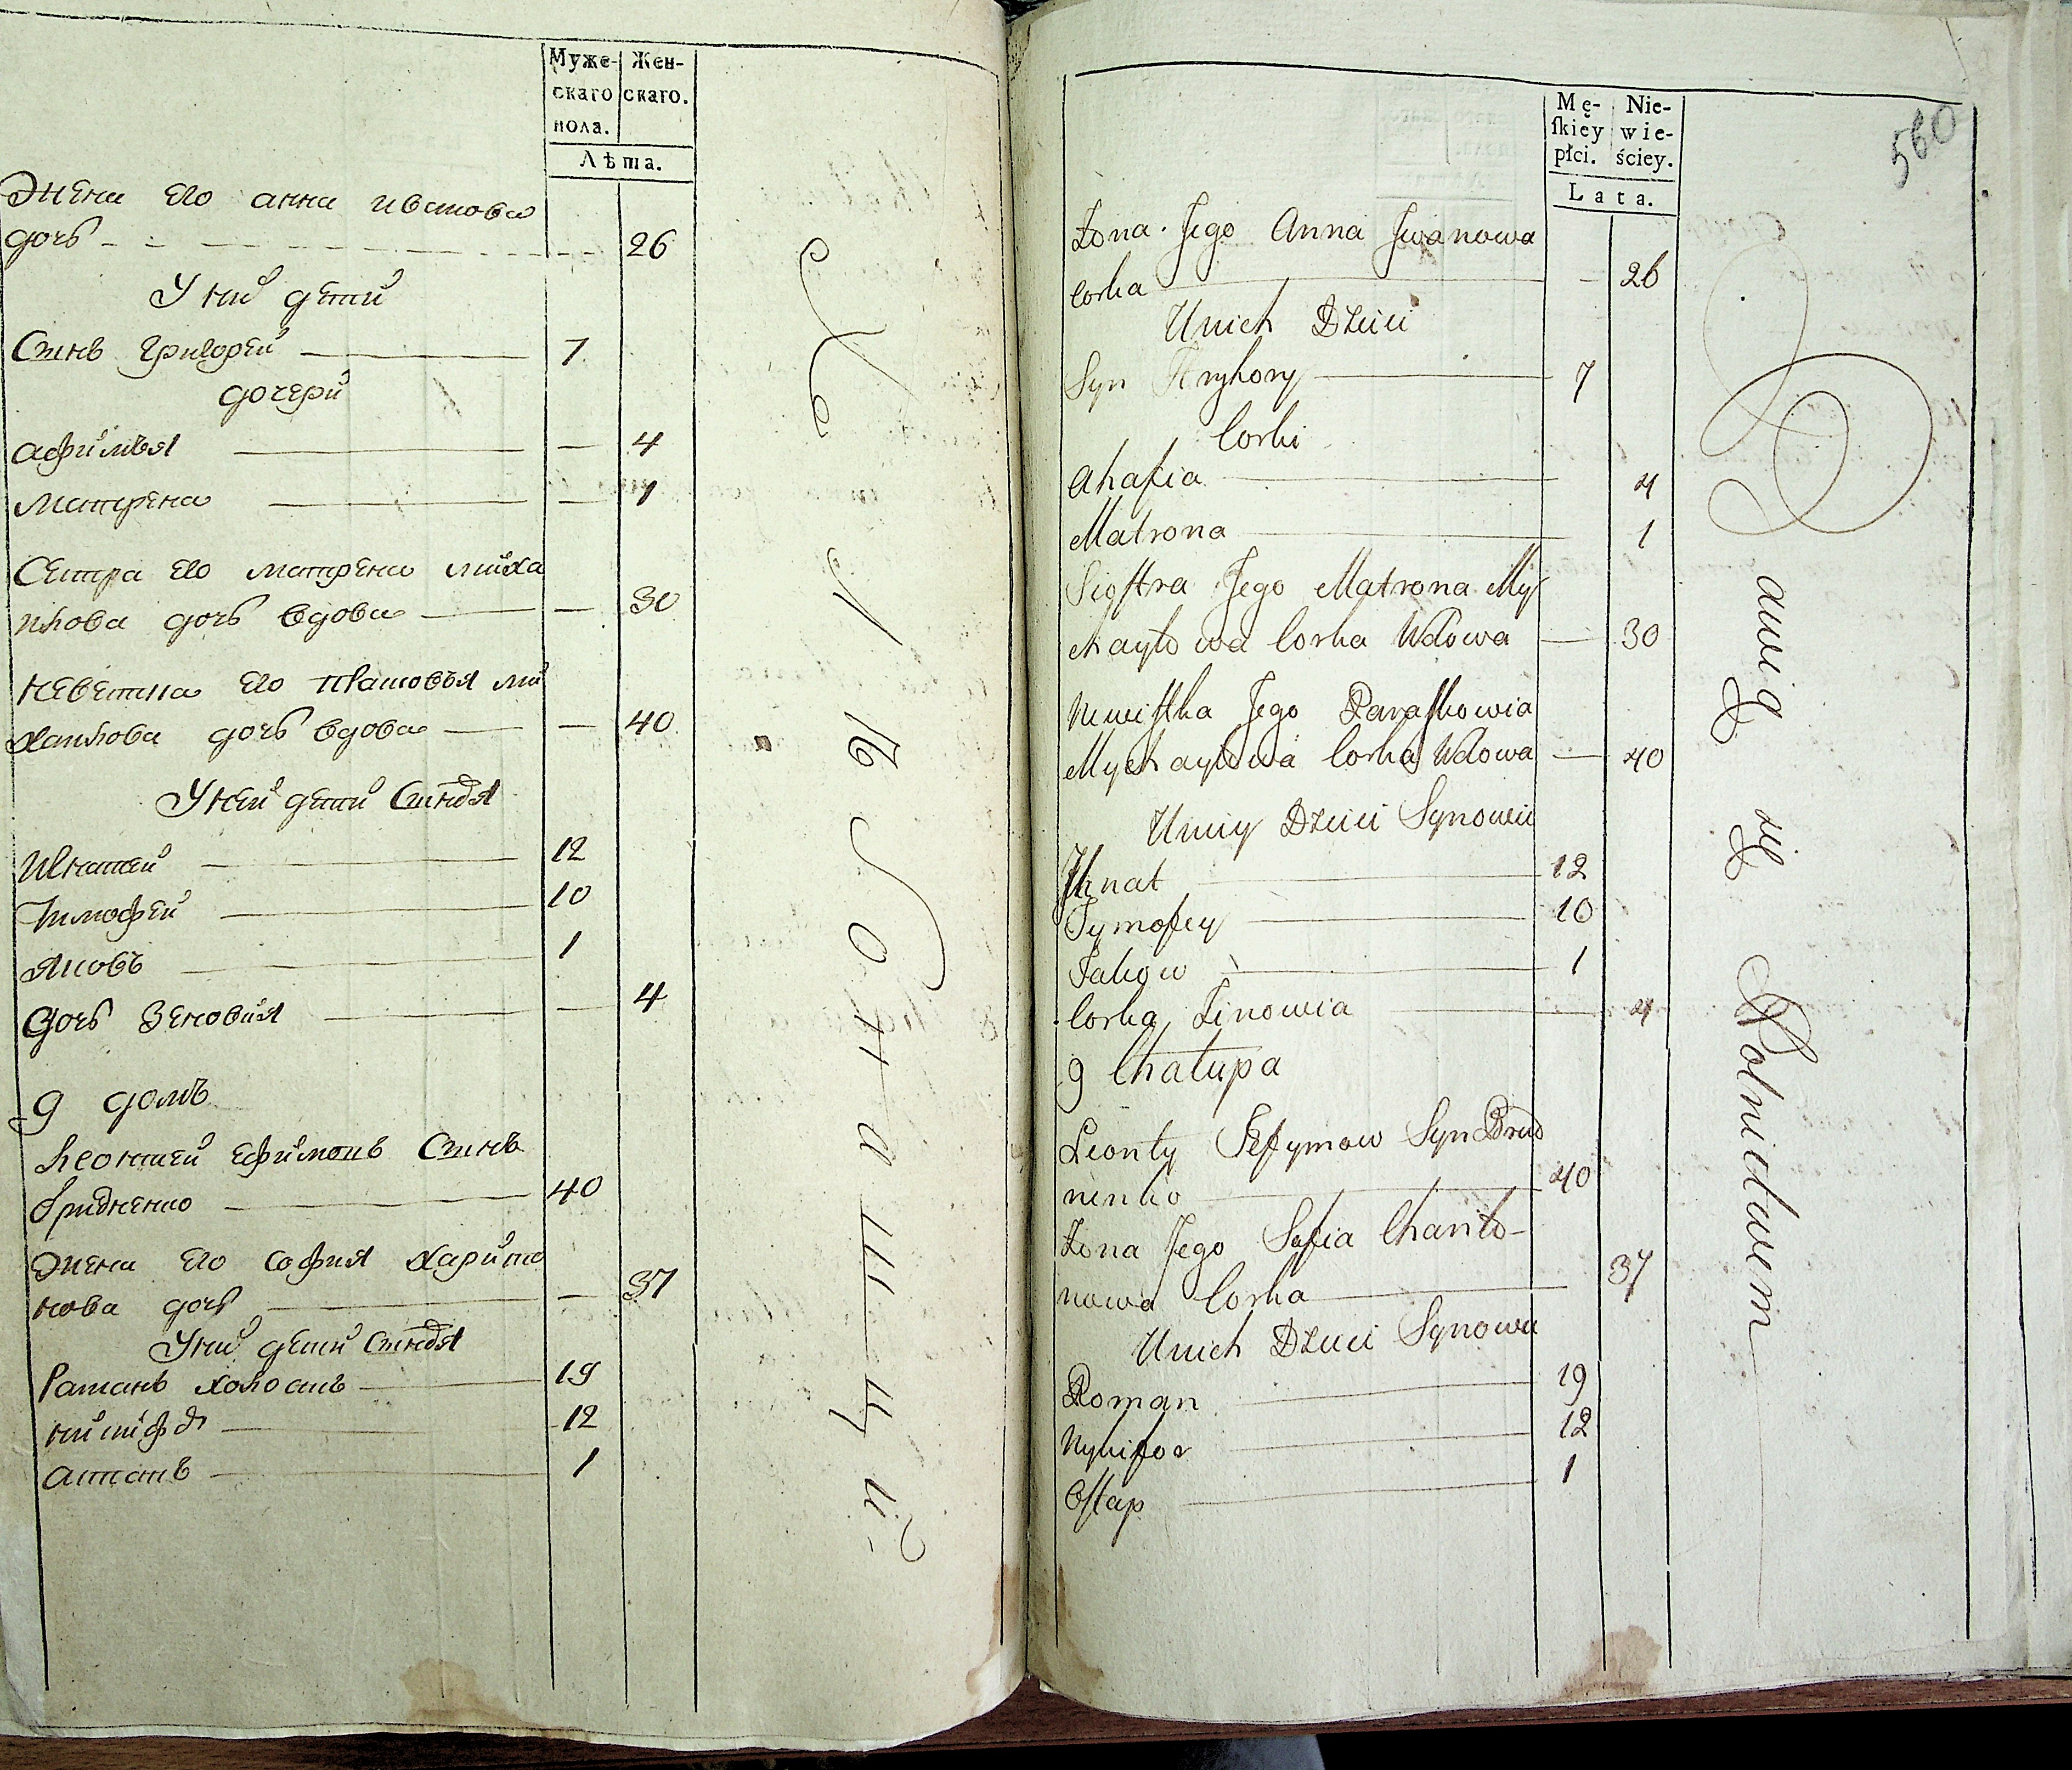 Муже-
скаго
пола.
Жен-
скаго.
Лѣта.
Жена его анна иванова
дочь 26
У них дети
Сынъ григорей 7
дочери
афимья 4
Матрена 1
Сестра его матрена миха
илова дочь вдова 30
невестка его прасковья ми
хаилова дочь вдова 40
У ней дети Сыновья
Игнатей 12
Тимофей 10
Яковъ 1
Дочь Зеновия 4
9 домъ
Леонтей ефимовъ Сынъ
40
Жена его софия харито
нова дочь 37
У них дети Сыновья
Раманъ холостъ 19
никифор 12
астапъ 1
Mę-
skiey
płci.
Nie-
wie-
ściey.
Lata.
560
Żona Jego Anna Jwanowa
Corka 26
U nich Dzieci
Syn Hryhory 7
Corki
Ahafia 4
Matrona 1
Siostra Jego Matrona My
chayłowa Corka Wdowa 30
Niewistka Jego Paraskowia
Mychayłowa Corka Wdowa 40
U niey Dzieci Synowie
Ihnat 12
Tymofey 10
Jakow 1
Corka Zinowia 4
9 Chałupa
Leonty Jefymow Syn Brud
nenko 40
Żona Jego Sofia Charito-
nowa Corka 37
U nich Dzieci Synowie
Roman 19
Nykifor 12
Ostap 1
bawią się Rolnictwem